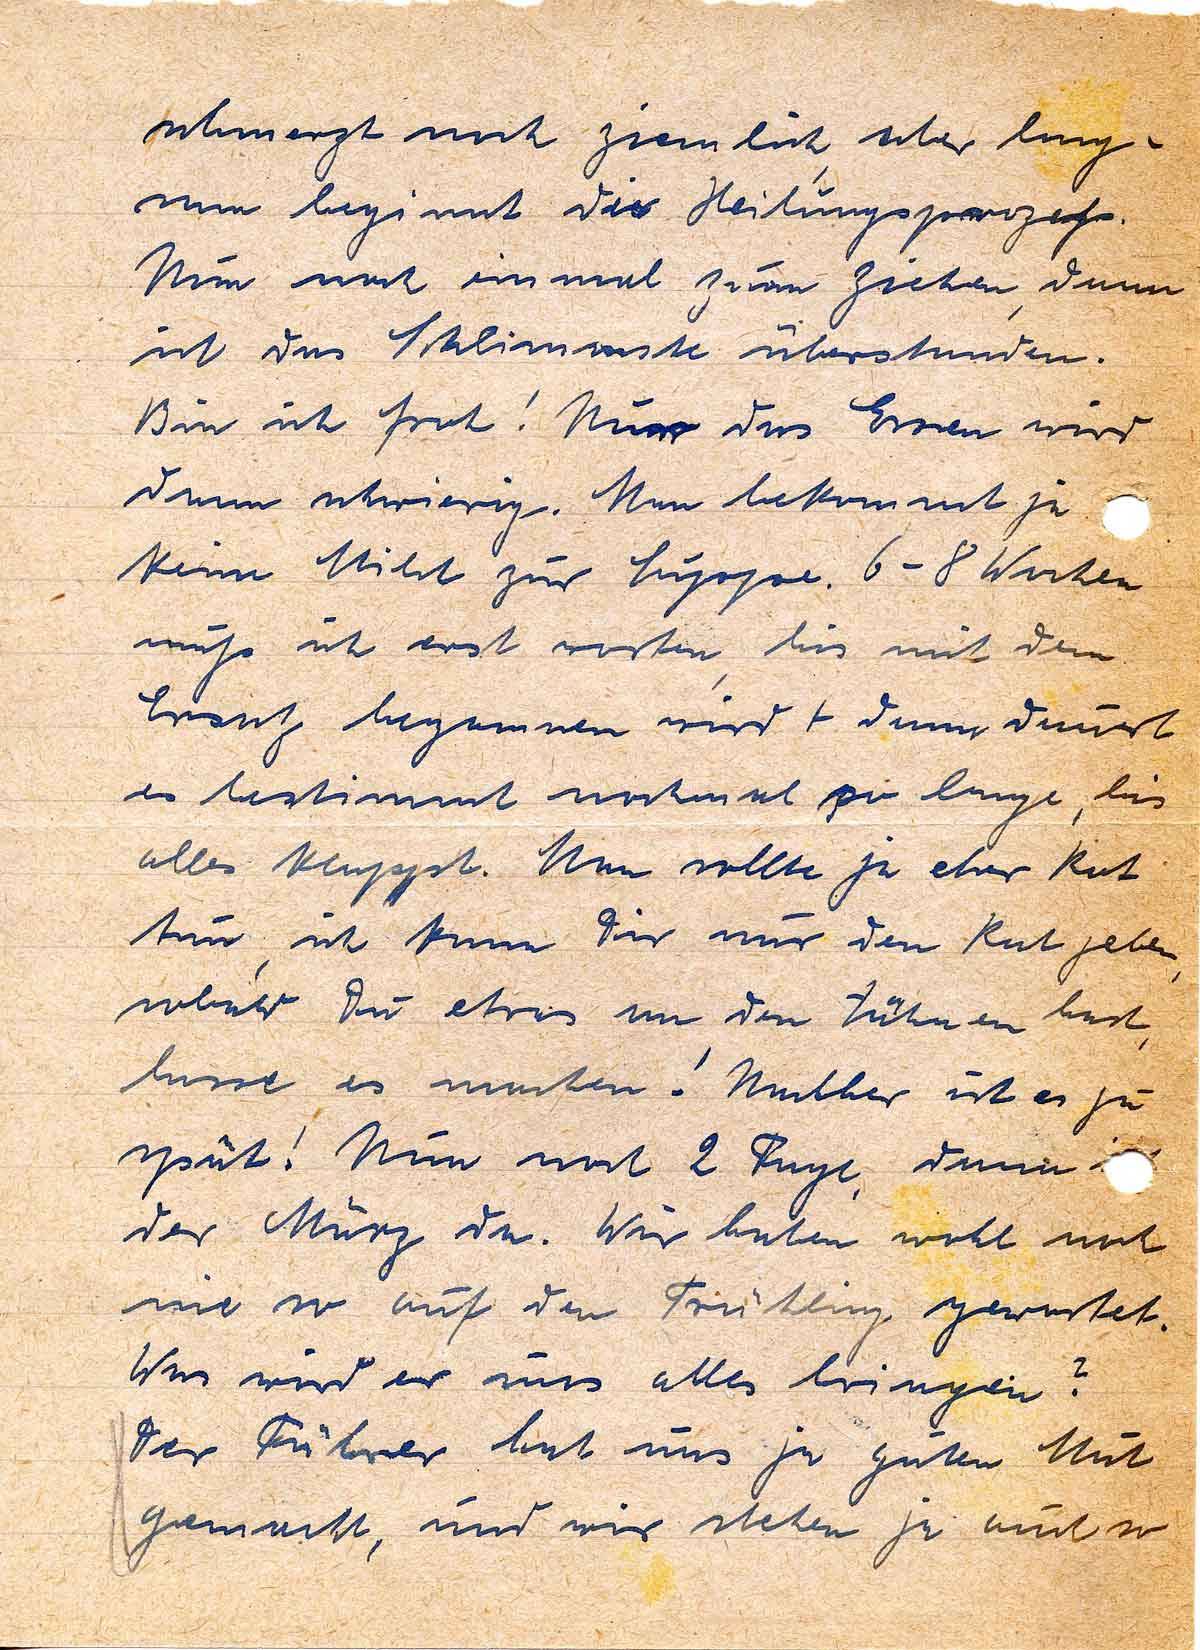 schmerzt noch ziemlich, aber lang-
sam beginnt der Heilungsprozeß.
Nun noch einmal zum Ziehen, dann
ist das Schlimmste überstanden.
Bin ich froh! Nur das Essen wird
dann schwierig. Man bekommt ja
keine Milch zur Suppe. 6–8 Wochen
muß ich erst warten, bis mit dem
Ersatz begonnen wird + dann dauert
es bestimmt nochmal so lange, bis
alles klappt. Man sollte ja eher Rat
tun, ich kann Dir nur den Rat geben,
sobald Du etwas an den Zähnen hast,
lasse es machen! Nachher ist es zu
spät! Nun noch 2 Tage, dann
der März da. Wir haben wohl noch
nie so auf den Frühling gewartet.
Was wird er uns alles bringen?
Der Führer hat uns ja guten Mut
gemacht, und wir stehen ja auch so